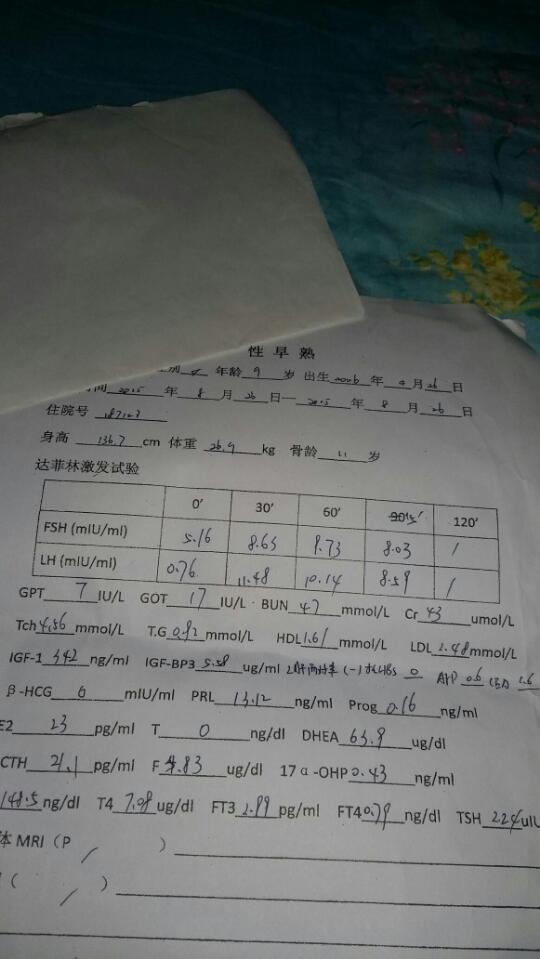 性早熟
别 女 年龄 9 岁 出生 2006 年 月 26 日
间 2015 年 8 月 26 日— 2015 年 8 月 26 日
住院号
身高 136.7 cm 体重 26.9 kg 骨龄 11 岁
达菲林激发试验
0' 30' 60' 120'
FSH (mIU/ml) 5.16 8.65 8.73 8.03 /
LH (mIU/ml) 0.76 11.48 10.14 8.59 /
GPT 7 IU/L GOT 17 IU/L BUN 4.7 mmol/L Cr 43 umol/L
Tch 4.56 mmol/L T.G 0.92 mmol/L HDL 1.61 LDL 2.48 mmol/L
IGF-1 342 ng/ml IGF-BP3 5.58 ug/ml 乙肝两对半 (-) 抗HBS 0 AFP 0.6 CEA 1.6
β-HCG 0 mIU/ml PRL 13.12 ng/ml Prog 0.16 ng/ml
E2 23 pg/ml T 0 ng/dl DHEA 63.9 ug/dl
CTH 21.1 pg/ml F 4.83 ug/dl 17α-OHP 0.43 ng/ml
148.5 ng/dl T4 7.08 ug/dl FT3 2.99 pg/ml FT4 0.79 ng/dl TSH 2.24 uIU
体 MRI (P / )
( / )